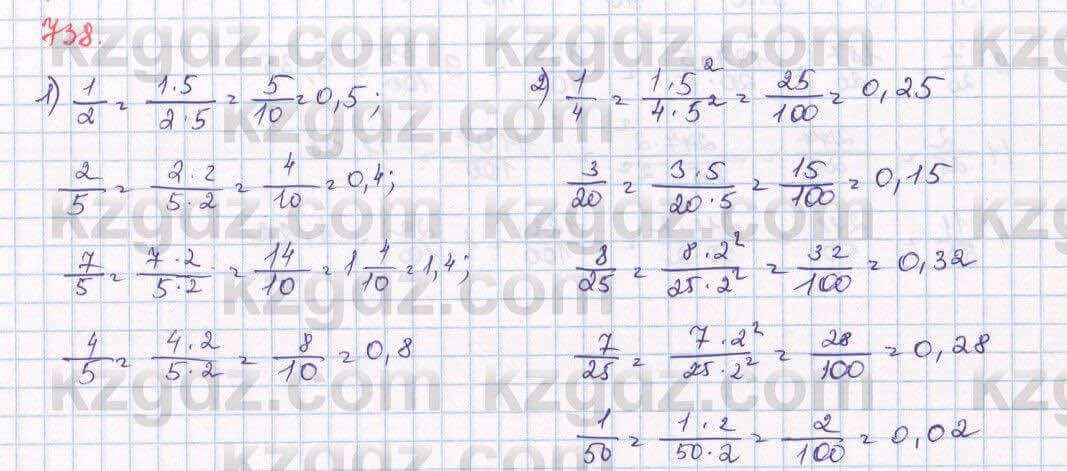 738.
1) 1/2 = 1·5/2·5 = 5/10 = 0,5;
2/5 = 2·2/5·2 = 4/10 = 0,4;
7/5 = 7·2/5·2 = 14/10 = 1 4/10 = 1,4;
4/5 = 4·2/5·2 = 8/10 = 0,8
2) 1/4 = 1·5²/4·5² = 25/100 = 0,25
3/20 = 3·5/20·5 = 15/100 = 0,15
8/25 = 8·2²/25·2² = 32/100 = 0,32
7/25 = 7·2²/25·2² = 28/100 = 0,28
1/50 = 1·2/50·2 = 2/100 = 0,02
kzgdz.com